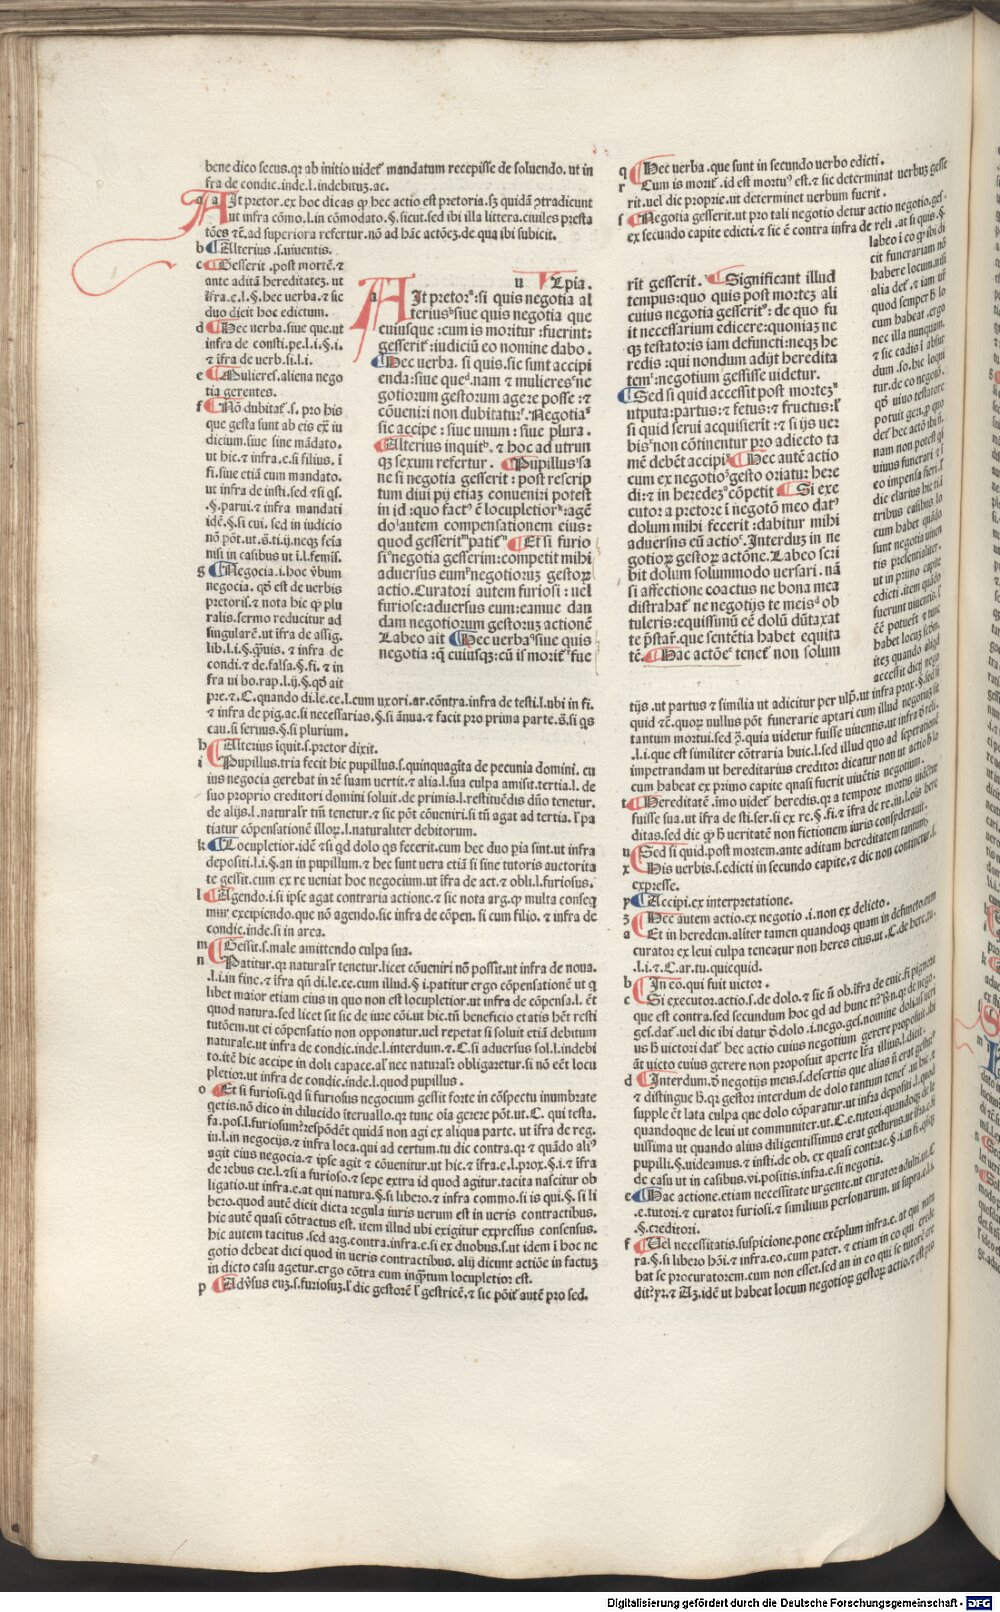 bene dico secus.qr ab initio uidet mandatum recepisse de soluendo.ut in
fra de condic.inde.l.indebituz.ac.
a Ait pretor.ex hoc dicas qp hec actio est pretoria.sz quidā ɔtradicunt
ut infra cōmo.l.in cōmodato.§.sicut.sed ibi illa littera.ciuiles presta
tōes ⁊c̄.ad superiora refertur.nō ad hāc actōez.de qua ibi subicit.
b Alterius.s.uiuentis.
c Gesserit.post mortē.⁊
ante aditā hereditatez.ut
īfra.e.l.§.hec uerba.⁊ sic
duo dicit hoc edictum.
d Hec uerba.siue que.ut
infra de consti.pe.l.i.§.i.
⁊ īfra de uerb.si.l.i.
e Mulieres.aliena nego
tia gerentes.
f Nō dubitat.s.pro his
que gesta sunt ab eis ex̄ iu
dicium.siue sine mādato.
ut hic.⁊ infra.e.si filius.ī
fi.siue etiā cum mandato.
ut infra de insti.sed ⁊si qs.
.§.parui.⁊ infra mandati
idē.§.si cui.sed in iudicio
nō pōt.ut.s̄.ti.ij.neqz feia
nisi in casibus ut i.l.femīs.
g Negocia.i.hoc v̄bum
negocia.qd̄ est de uerbis
pretoris.⁊ nota hic qp plu
ralis.sermo reducitur ad
singularē.ut īfra de assig.
lib.l.i.§.q̄uis.⁊ infra de
condi.⁊ de.falsa.§.fi.⁊ in
fra ui bo.rap.l.ij.§.qd̄ ait
pre.⁊.C.quando di.le.ce.l.cum uxori.ar.cōntra.infra de testi.l.ubi in fi.
⁊ infra de pig.ac.si necessarias.§.si ānua.⁊ facit pro prima parte.s̄.si qs
cau.si seruus.§.si plurium.
h Alterius īquit.s.pretor dixit.
i Pupillus.tria fecit hic pupillus.s.quinquagīta de pecunia domini.cu
ius negocia gerebat in rē suam uertit.⁊ alia.l.sua culpa amisit.tertia.l.de
suo proprio creditori domini soluit.de primis.l.restituēdis dn̄o tenetur.
de alijs.l.naturalr tn̄ tenetur.⁊ sic pōt cōueniri.si tn̄ agat ad tertia.l'pa
tiatur cōpensationē illoꝝ.l.naturaliter debitorum.
k Locupletior.idē ⁊si qd dolo qs fecerit.cum hec duo pia sint.ut infra
depositi.l.i.§.an in pupillum.⁊ hec sunt uera etiā si sine tutoris auctorita
te gessit.cum ex re ueniat hoc negocium.ut īfra de act.⁊ obli.l.furiosus.
l Agendo.i.si ipse agat contraria actione.⁊ sic nota arg.qp multa conseq
mur excipiendo.que nō agendo.sic infra de cōpen.si cum filio.⁊ infra de
condic.inde.si in area.
m Gessit.s.male amittendo culpa sua.
n Patitur.qr naturalr tenetur.licet cōueniri nō possit.ut infra de noua.
.l.i.in fine.⁊ īfra qn̄ di.le.ce.cum illud.§ i.patitur ergo cōpensationē ut q
libet maior etiam eius in quo non est locupletior.ut infra de cōpensa.l.ēt
quod natura.sed licet sit sic de iure cōi.ut hic.tn̄ beneficio etatis hēt resti
tutōem.ut ei cōpensatio non opponatur.uel repetat si soluit etiā debitum
naturale.ut infra de condic.inde.l.interdum.⁊.C.si aduersus sol.l.indebi
to.itē hic accipe in doli capace.al' nec naturalr obligaretur.si nō eēt locu
pletior.ut infra de condic.inde.l.quod pupillus.
o Et si furiosi.qd si furiosus negocium gessit forte in cōspectu inumbrate
qetis.nō dico in dilucido īteruallo.qr tunc oīa gerere pōt.ut.C.qui testa.
fa.pos.l.furiosum?respōdēt quidā non agi ex aliqua parte.ut īfra de reg.
iu.l.in negocijs.⁊ infra loca.qui ad certum.tu dic contra.qr ⁊ quādo ali'
agit eius negocia.⁊ ipse agit ⁊ cōuenitur.ut hic.⁊ īfra.e.l.prox.§.i.⁊ īfra
de rebus cre.l.⁊si a furioso.⁊ sepe extra id quod agitur.tacita nascitur ob
ligatio.ut infra.e.at qui natura.§.si libero.⁊ infra commo.si is qui.§.si li
bero.quod autē dicit dicta regula iuris uerum est in ueris contractibus.
hic autē quasi cōtractus est.item illud ubi exigitur expressus consensus.
hic autem tacitus.sed arg.contra.infra.e.si ex duobus.s.ut idem ī hoc ne
gotio debeat dici quod in ueris contractibus.alij dicunt actiōe in factuz
in dicto casu agetur.ergo cōtra eum inq̄tum locupletior est.
p Adu̇sus euz.s.furiosuz.l' dic gestorē l' gestricē.⁊ sic pōit autē pro sed.
u Vlpia.
a Ait pretor:si quis negotia al
terius siue quis negotia que
cuiusque:cum is moritur:fuerint:
gesserit:iudiciū eo nomine dabo.
Hec uerba.si quis.sic sunt accipi
enda:siue que.nam ⁊ mulieres ne
gotiorum gestorum agere posse:⁊
cōueniri non dubitatur.Negotia
sic accipe:siue unum:siue plura.
Alterius inquit.⁊ hoc ad utrun
qz sexum refertur.Pupillus sa
ne si negotia gesserit:post rescrip
tum diui pij etiaz conueniri potest
in id:quo fact' ē locupletior:agē
do autem compensationem eius:
quod gesserit patit'.Et si furio
si negotia gesserim:competit mihi
aduersus eum negotioruz gestoꝝ
actio.Curatori autem furiosi:uel
furiose:aduersus eum:eamue dan
dam negotiorum gestoruz actionē
Labeo ait Hec uerba siue quis
negotia:q̄ cuiusqz:cū is morit' fue
rit gesserit.Significant illud
tempus:quo quis post mortez ali
cuius negotia gesserit:de quo fu
it necessarium edicere:quoniaz ne
qz testatoris iam defuncti:neqz he
redis:qui nondum adijt heredita
tem:negotium gessisse uidetur.
Sed si quid accessit post mortez
utputa:partus:⁊ fetus:⁊ fructus:l'
si quid serui acquisierit:⁊ si ijs uer
bis non cōtinentur pro adiecto ta
mē debēt accipi Hec autē actio
cum ex negotio gesto oriatur here
di:⁊ in heredez cōpetit Si exe
cutor a pretore ī negotō meo dat'
dolum mihi fecerit:dabitur mihi
aduersus eū actio.Interduz in ne
gotioꝝ gestoꝝ actōne.Labeo scri
bit dolum solummodo uersari.nā
si affectione coactus ne bona mea
distrahat ne negotijs te meis ob
tuleris:equissimū eē dolū dūtaxat
te p̄star.que sentētia habet equita
tē.Hac actōe tenet non solum
q Hec uerba.que sunt in secundo uerbo edicti.
r Cum is morit'.id est mortu' est.⁊ sic determinat uerbuz gesse
rit.uel dic proprie.ut determinet uerbum fuerit.
s Negotia gesserit.ut pro tali negotio detur actio negotio.ges.
ex secundo capite edicti.⁊ sic ē contra infra de reli.at si quis.§
labeo i eo qp ibi di
cit funerariam nō
habere locum.nisi
alia def.⁊ iam ut
quod semper h̄ lo
cum habeat.ergo
nec illa nunquam.
⁊ sic cadis ī absur
dum.so.hic loqui
tur.de co negotō.
qd̄ uiuo testatore
potuit geri.p quo
det hec actō ibi n̄.
nam non potest qs
uiuus funerari ⁊ ī
eo impensa fieri.l'
dic clarius hic ti.l
tribus casibus lo
cum habet quādo
sunt negotia uiuen
tis presentialiter.
ut in primo capite
edicti.item quādo
fuerunt uiuentis.l'
ēē potuerūt ⁊ tunc
habet locus secm.
itez quando aliqd
accessit dicti nego
tijs.ut partus ⁊ similia ut adicitur per ulp̄.ut infra prox.§.sed ij
quid ⁊c̄.quoꝝ nullus pōt funerarie aptari cum illud negociuz sit
tantum mortui.sed ɜ̄.quia uidetur fuisse uiuentis.ut infra ō reli.
.l.i.que est similiter cōtraria huic.l.sed illud quo ad seperationē
impetrandam ut hereditarius creditor dicatur non ut actio h̄ lo
cum habeat ex primo capite quasi fuerit uiuētis negotium.
t Hereditatē.imo uidet' heredis.qr a tempore mortis uidētur
fuisse sua.ut īfra de sti.ser.si ex re.§.fi.⁊ īfra de re.iu.l.ois here
ditas.sed dic qp h̄ ueritatē non fictionem iuris consyderauit.
u Sed si quid.post mortem.ante aditam hereditatem tantum.
x His uerbis.s.edicti in secundo capite.⁊ dic non continetur.s.
expresse.
y Accipi.ex interpretatione.
z Hec autem actio.ex negotio.i.non ex delicto.
a Et in heredem.aliter tamen quandoqz quam in defuncto.cum
curator ex leui culpa teneatur non heres eius.ut.C.de here.tu.
.l.i.⁊.C.ar.tu.quicquid.
b In eo.qui fuit uictor.
c Si executor.actio.s.de dolo.⁊ sic n̄ ob.īfra de euic.si pignori
que est contra.sed secundum hoc qd ad hunc ti?℞n̄.qr de nego.
ges.dat'.uel dic ibi datur ō dolo.i.nego.ges.nomine doli.ut ueri
us h̄ uictori dat' hec actio cuius negotium gerere proposuit.ibi
āt uicto cuius gerere non proposuit aperte īfra illius.l.dicit.
d Interdum.ō negotijs meis.s.desertis que alias n̄ erat gestur'
⁊ distingue h̄.qr gestor interdum de dolo tantum tenet'.ut hic.⁊
supple ēt lata culpa que dolo cōparatur.ut infra depositi.l.quod
quandoque de leui ut communiter.ut.C.e.tutori.quandoqz de le
uissima ut quando alius diligentissimus erat gesturus.ut īfra.e.si
pupilli.§.uideamus.⁊ insti.de ob.ex quasi contrac.§.i.in fi.qnqz
de casu ut in casibus.vi.positis.infra.e.si negotia.
e Hac actione.etiam necessitate urgente.ut curator adulti.ut.C
.e.tutori.⁊ curator furiosi.⁊ similium personarum.ut supra.e.l.i.
.§.creditori.
f Uel necessitatis.suspicione.pone exēplum infra.e.at qui natu
ra.§.si libero hōi.⁊ infra.eo.cum pater.⁊ etiam in eo qui crede
bat se procuratorem.cum non esset.sed an in eo qui se tutorē cre
dit?pr.⁊ Az.idē ut habeat locum negotioꝝ gestoꝝ actio.⁊ est pro
Digitalisierung gefördert durch die Deutsche Forschungsgemeinschaft - DFG